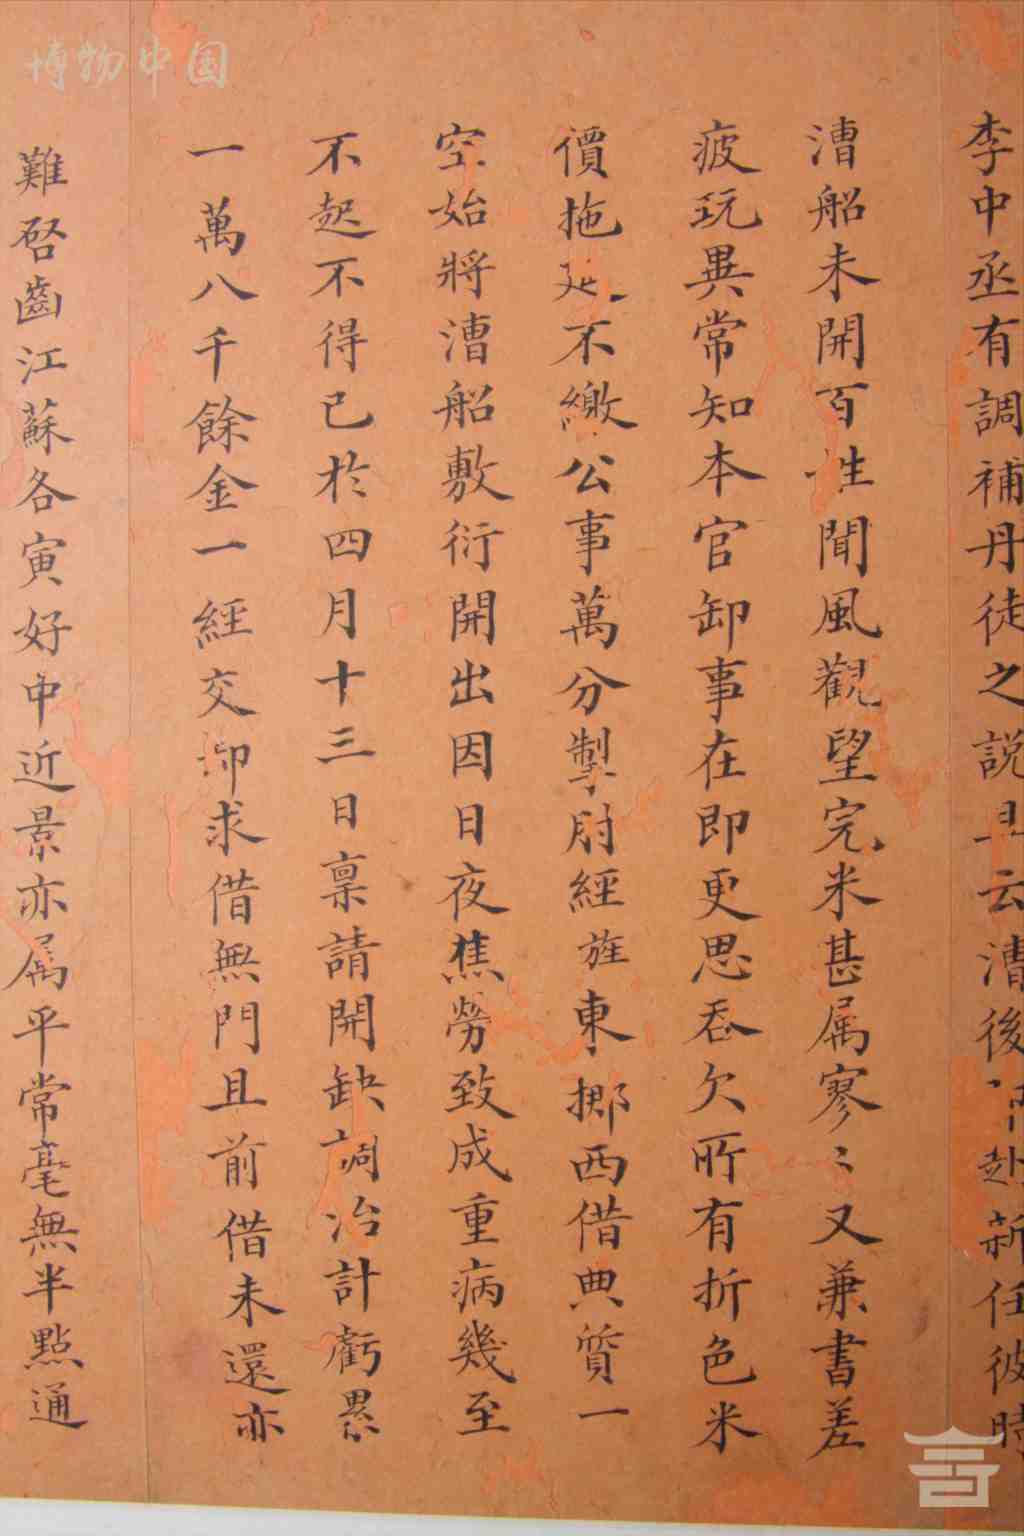 博物中国
李中丞有調補丹徒之説且云漕後即赴新任彼時
漕船未開百姓聞風觀望完米甚属寥〻又兼書差
疲玩異常知本官卸事在即更思吞欠所有折色米
價拖延不繳公事萬分掣肘經旌東挪西借典質一
空始將漕船敷衍開出因日夜焦勞致成重病幾至
不起不得已於四月十三日稟請開缺調治計虧累
一萬八千餘金一經交卸求借無門且前借未還亦
難啓齒江蘇各寅好中近景亦属平常毫無半點通